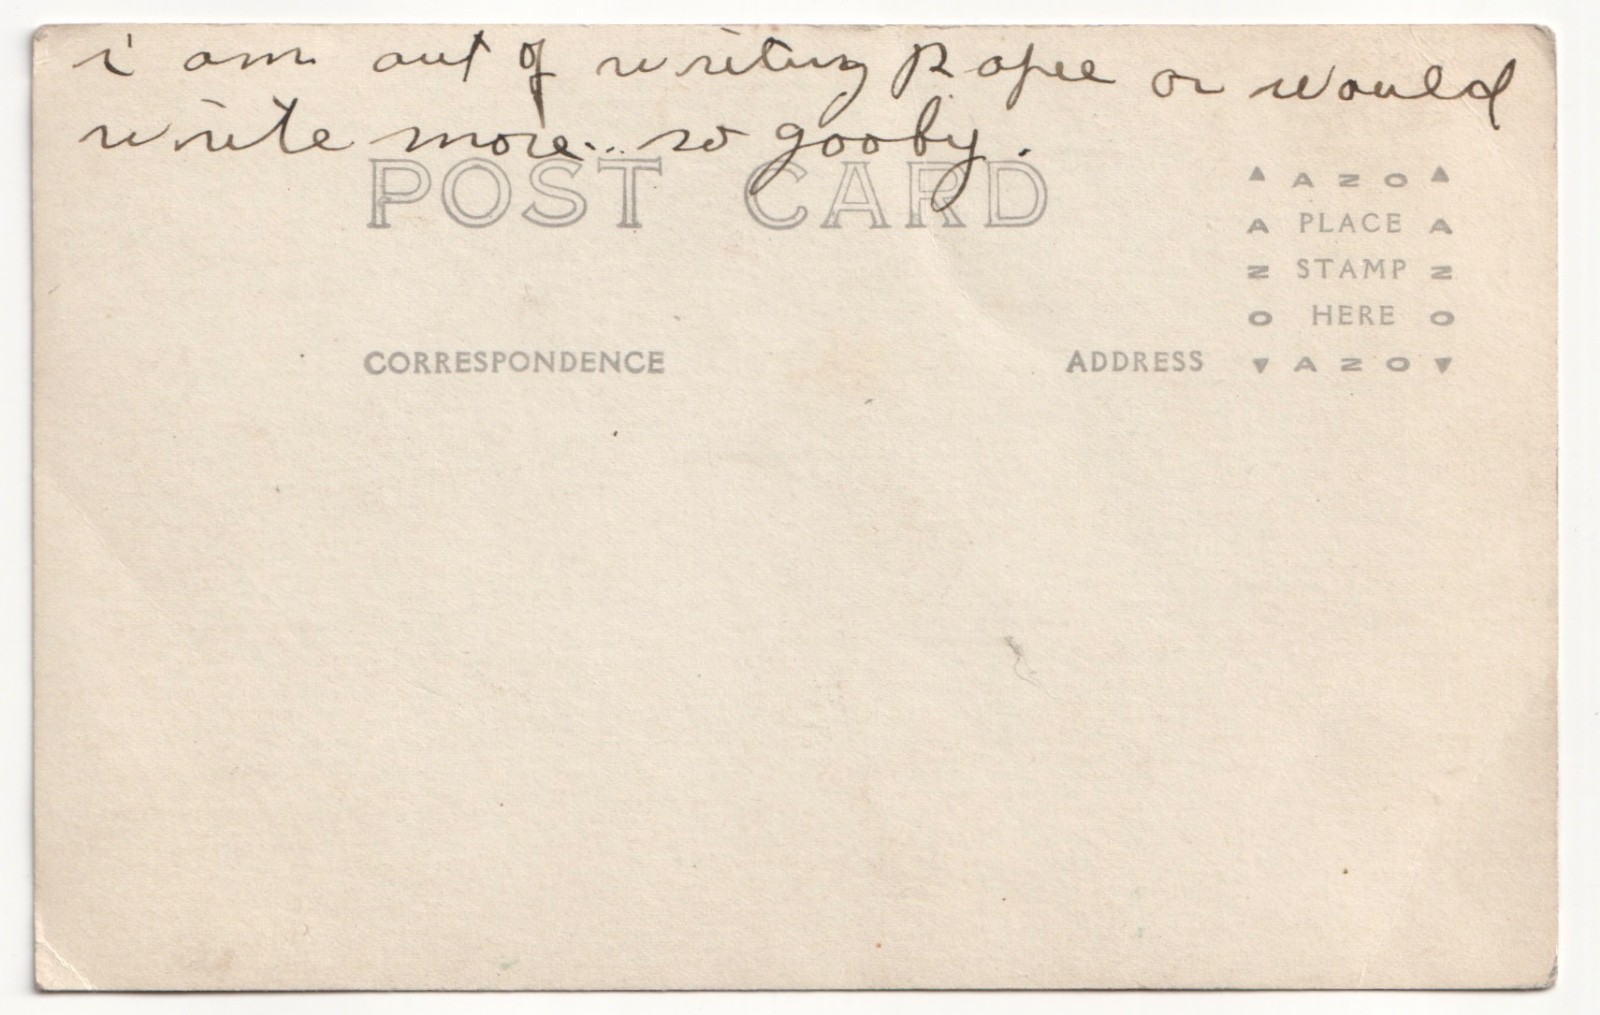 i am out of writing paper or would
write more... so gooby.
POST CARD
▲ A Z O ▲
A PLACE A
Z STAMP Z
O HERE O
CORRESPONDENCE ADDRESS ▼ A Z O ▼